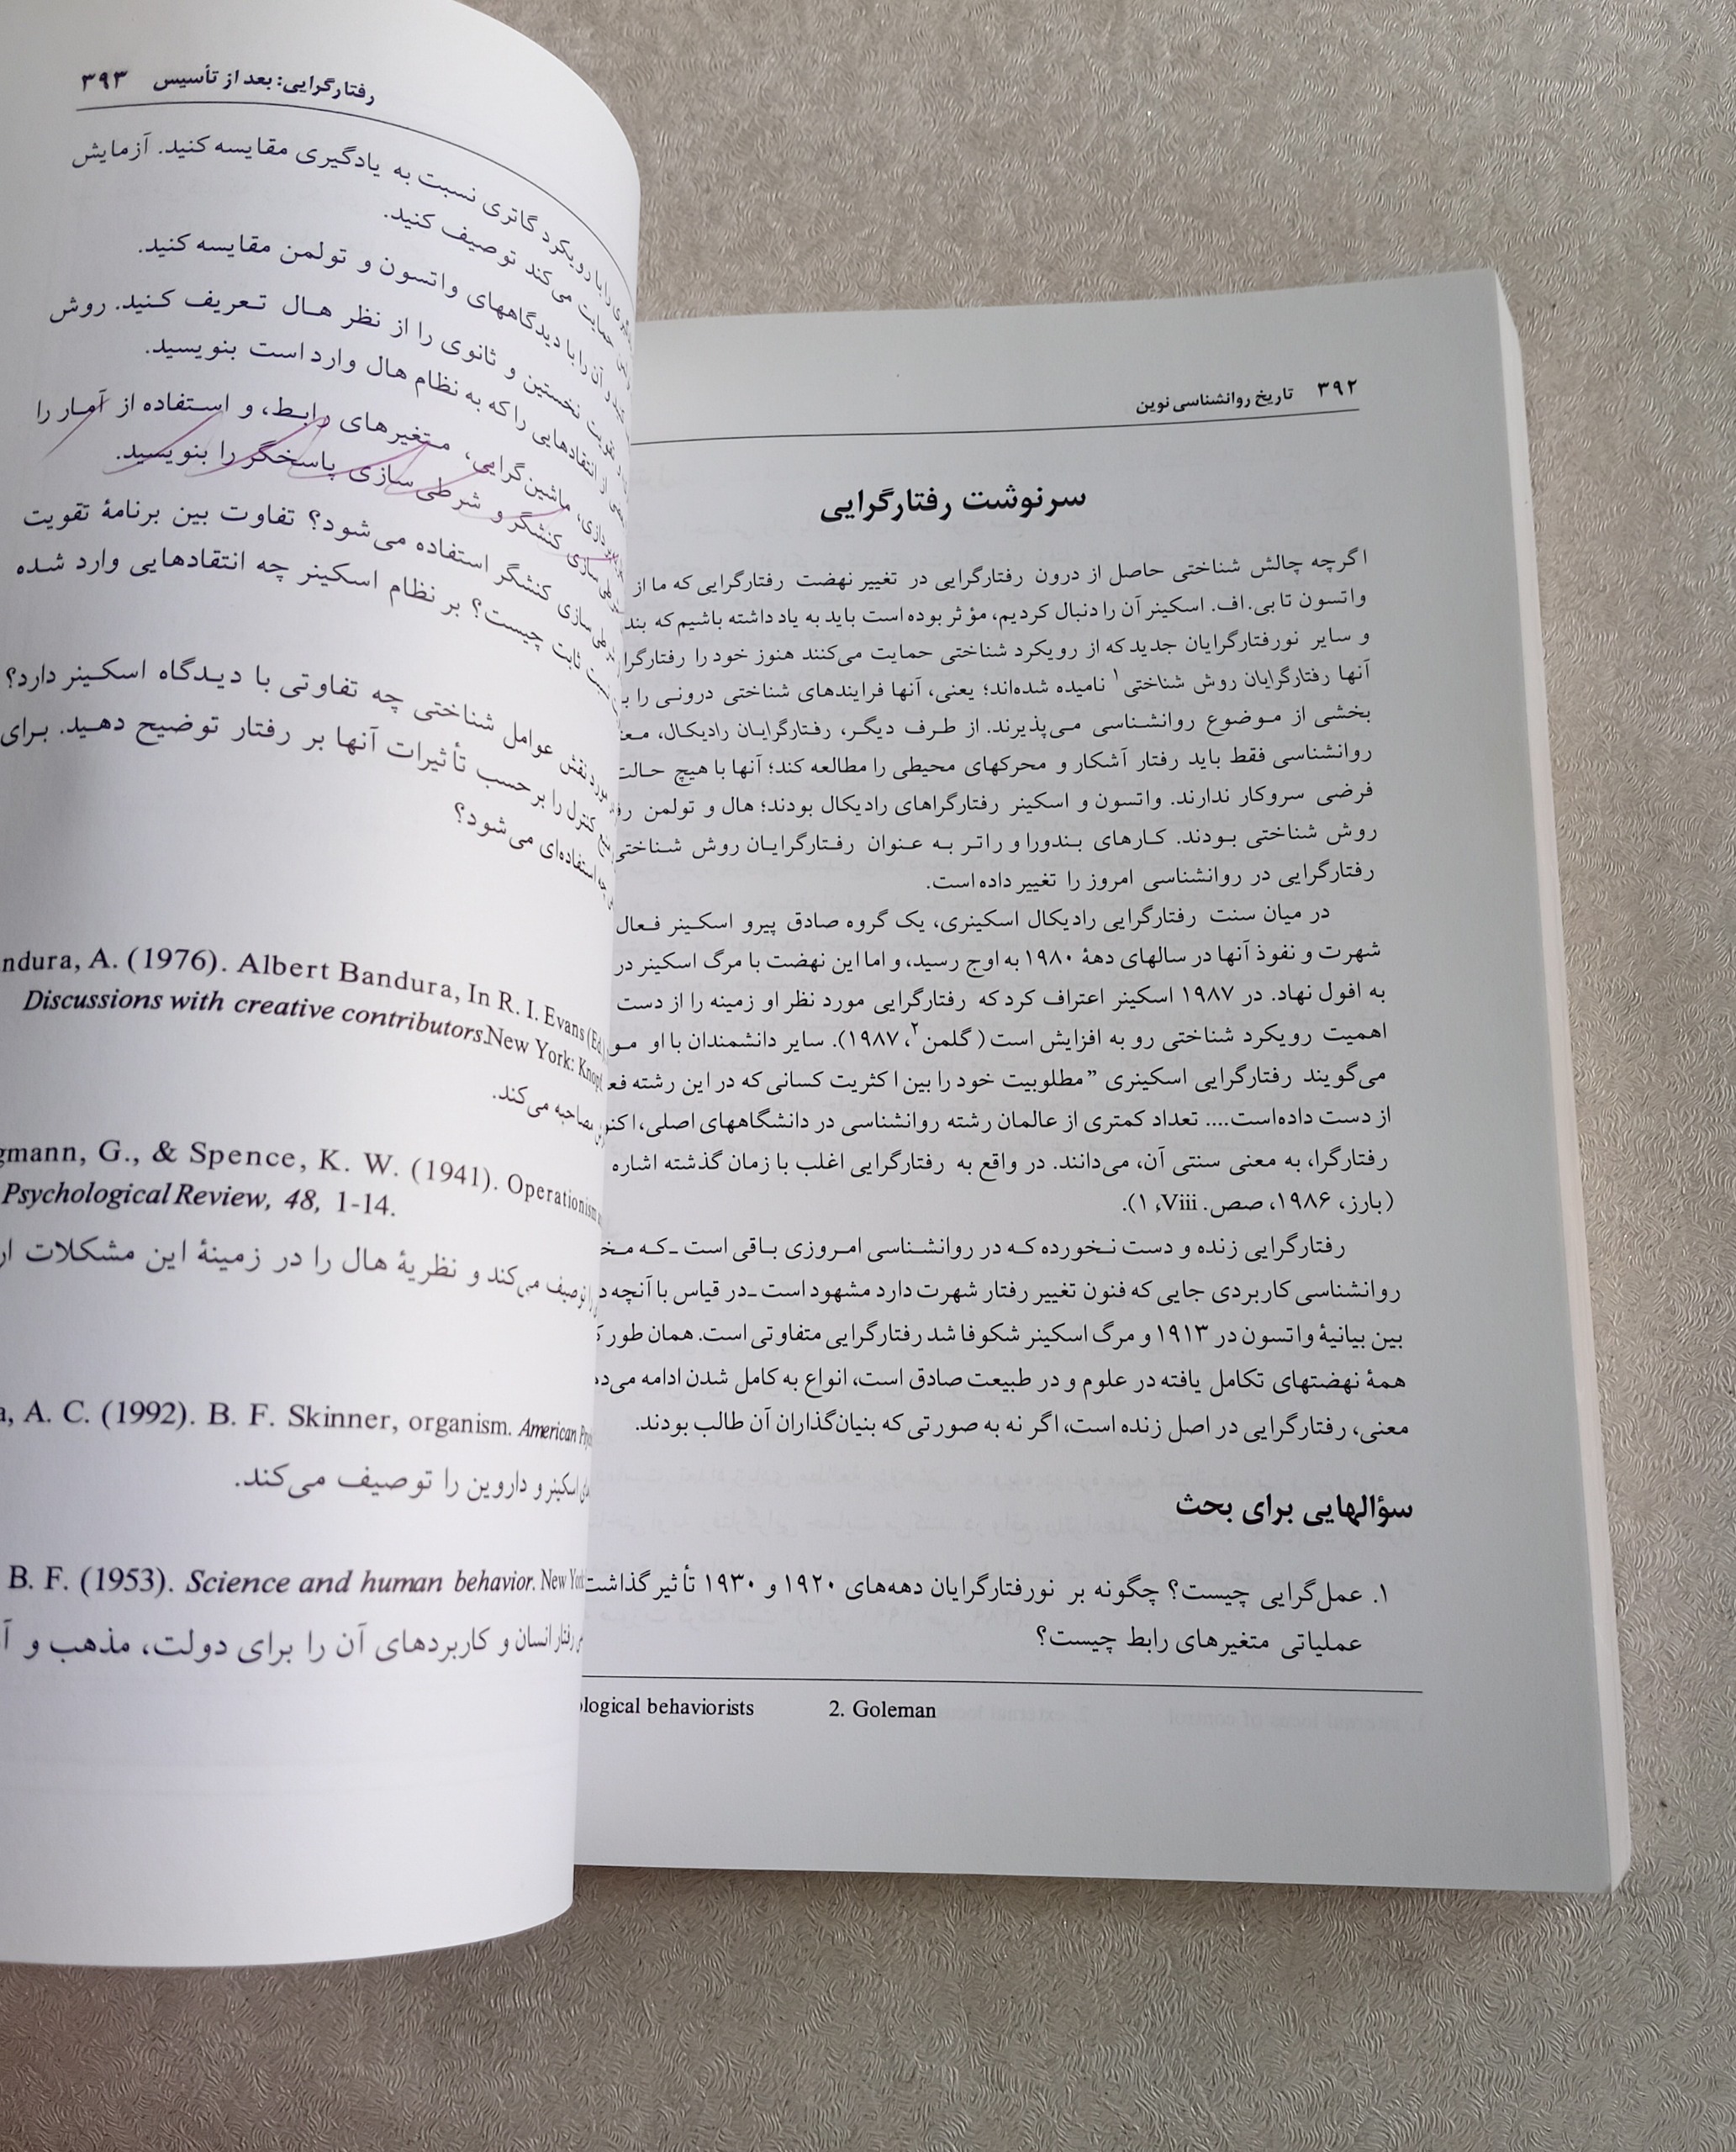 ۳۹۲ تاریخ روانشناسی نوین
سرنوشت رفتارگرایی
اگرچه چالش شناختی حاصل از درون رفتارگرایی در تغییر نهضت رفتارگرایی که ما از
واتسون تا بی. اف. اسکینر آن را دنبال کردیم، مؤثر بوده است باید به یاد داشته باشیم که
و سایر نورفتارگرایان جدید که از رویکرد شناختی حمایت می‌کنند هنوز خود را
آنها رفتارگرایان روش شناختی۱ نامیده شده‌اند؛ یعنی، آنها فرایندهای شناختی درونی را
بخشی از موضوع روانشناسی می‌پذیرند. از طرف دیگر، رفتارگرایان رادیکال،
روانشناسی فقط باید رفتار آشکار و محرکهای محیطی را مطالعه کند؛ آنها با هیچ حالت
فرضی سروکار ندارند. واتسون و اسکینر رفتارگراهای رادیکال بودند؛ هال و تولمن
روش شناختی بودند. کارهای بندورا و راتر به عنوان رفتارگرایان روش شناختی
رفتارگرایی در روانشناسی امروز را تغییر داده است.
در میان سنت رفتارگرایی رادیکال اسکینری، یک گروه صادق پیرو اسکینر فعال
شهرت و نفوذ آنها در سالهای دههٔ ۱۹۸۰ به اوج رسید، و اما این نهضت با مرگ اسکینر در
به افول نهاد. در ۱۹۸۷ اسکینر اعتراف کرد که رفتارگرایی مورد نظر او زمینه را از دست
اهمیت رویکرد شناختی رو به افزایش است (گلمن۲، ۱۹۸۷). سایر دانشمندان با او
می‌گویند رفتارگرایی اسکینری ”مطلوبیت خود را بین اکثریت کسانی که در این رشته
از دست داده‌است.... تعداد کمتری از عالمان رشته روانشناسی در دانشگاههای اصلی،
رفتارگرا، به معنی سنتی آن، می‌دانند. در واقع به رفتارگرایی اغلب با زمان گذشته اشاره
(بارز، ۱۹۸۶، صص. Viii، ۱).
رفتارگرایی زنده و دست نخورده که در روانشناسی امروزی باقی است ـ که
روانشناسی کاربردی جایی که فنون تغییر رفتار شهرت دارد مشهود است ـ در قیاس با آنچه
بین بیانیهٔ واتسون در ۱۹۱۳ و مرگ اسکینر شکوفا شد رفتارگرایی متفاوتی است. همان طور
همهٔ نهضتهای تکامل یافته در علوم و در طبیعت صادق است، انواع به کامل شدن ادامه
معنی، رفتارگرایی در اصل زنده است، اگر نه به صورتی که بنیان‌گذاران آن طالب بودند.
سؤالهایی برای بحث
۱. عمل‌گرایی چیست؟ چگونه بر نورفتارگرایان دهه‌های ۱۹۲۰ و ۱۹۳۰ تأثیر گذاشت
عملیاتی متغیرهای رابط چیست؟
ological behaviorists 2. Goleman
رفتارگرایی: بعد از تأسیس ۳۹۳
را با رویکرد گاتری نسبت به یادگیری مقایسه کنید. آزمایش
حمایت می‌کند توصیف کنید.
و آن را با دیدگاههای واتسون و تولمن مقایسه کنید.
تقویت نخستین و ثانوی را از نظر هال تعریف کنید. روش
از انتقادهایی را که به نظام هال وارد است بنویسید.
ماشین‌گرایی، متغیرهای رابط، و استفاده از آمار را
سازی کنشگر و شرطی سازی پاسخگر را بنویسید.
سازی کنشگر استفاده می‌شود؟ تفاوت بین برنامهٔ تقویت
ثابت چیست؟ بر نظام اسکینر چه انتقادهایی وارد شده
مورد نقش عوامل شناختی چه تفاوتی با دیدگاه اسکینر دارد؟
کنترل را برحسب تأثیرات آنها بر رفتار توضیح دهید. برای
چه استفاده‌ای می‌شود؟
ndura, A. (1976). Albert Bandura, In R. I. Evans (Ed.
Discussions with creative contributors. New York: Knopf
مصاحبه می‌کند.
gmann, G., & Spence, K. W. (1941). Operationism
Psychological Review, 48, 1-14.
را توصیف می‌کند و نظریهٔ هال را در زمینهٔ این مشکلات
a, A. C. (1992). B. F. Skinner, organism. American
اسکینر و داروین را توصیف می‌کند.
B. F. (1953). Science and human behavior. New
رفتار انسان و کاربردهای آن را برای دولت، مذهب و